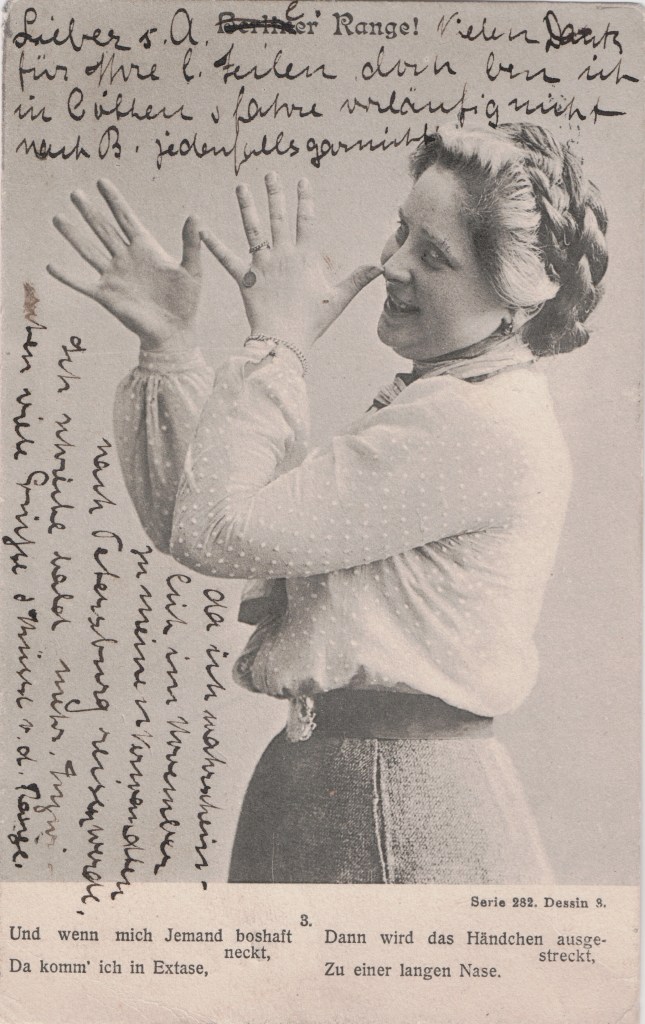 Berliner Range!
Lieber s. A. Vielen Dank
für Ihre l. Zeilen, bin ich
in Cöthen, fahre vorläufig nicht
nach B. jedenfalls garnicht
da ich wahrschein-
lich im November
zu meinen Verwandten
nach Petersburg reisen werde.
Ich schreibe bald mehr.
viele Grüße v. d. Range.
Serie 282. Dessin 3.
3.
Und wenn mich Jemand boshaft
neckt,
Da komm' ich in Extase,
Dann wird das Händchen ausge-
streckt,
Zu einer langen Nase.